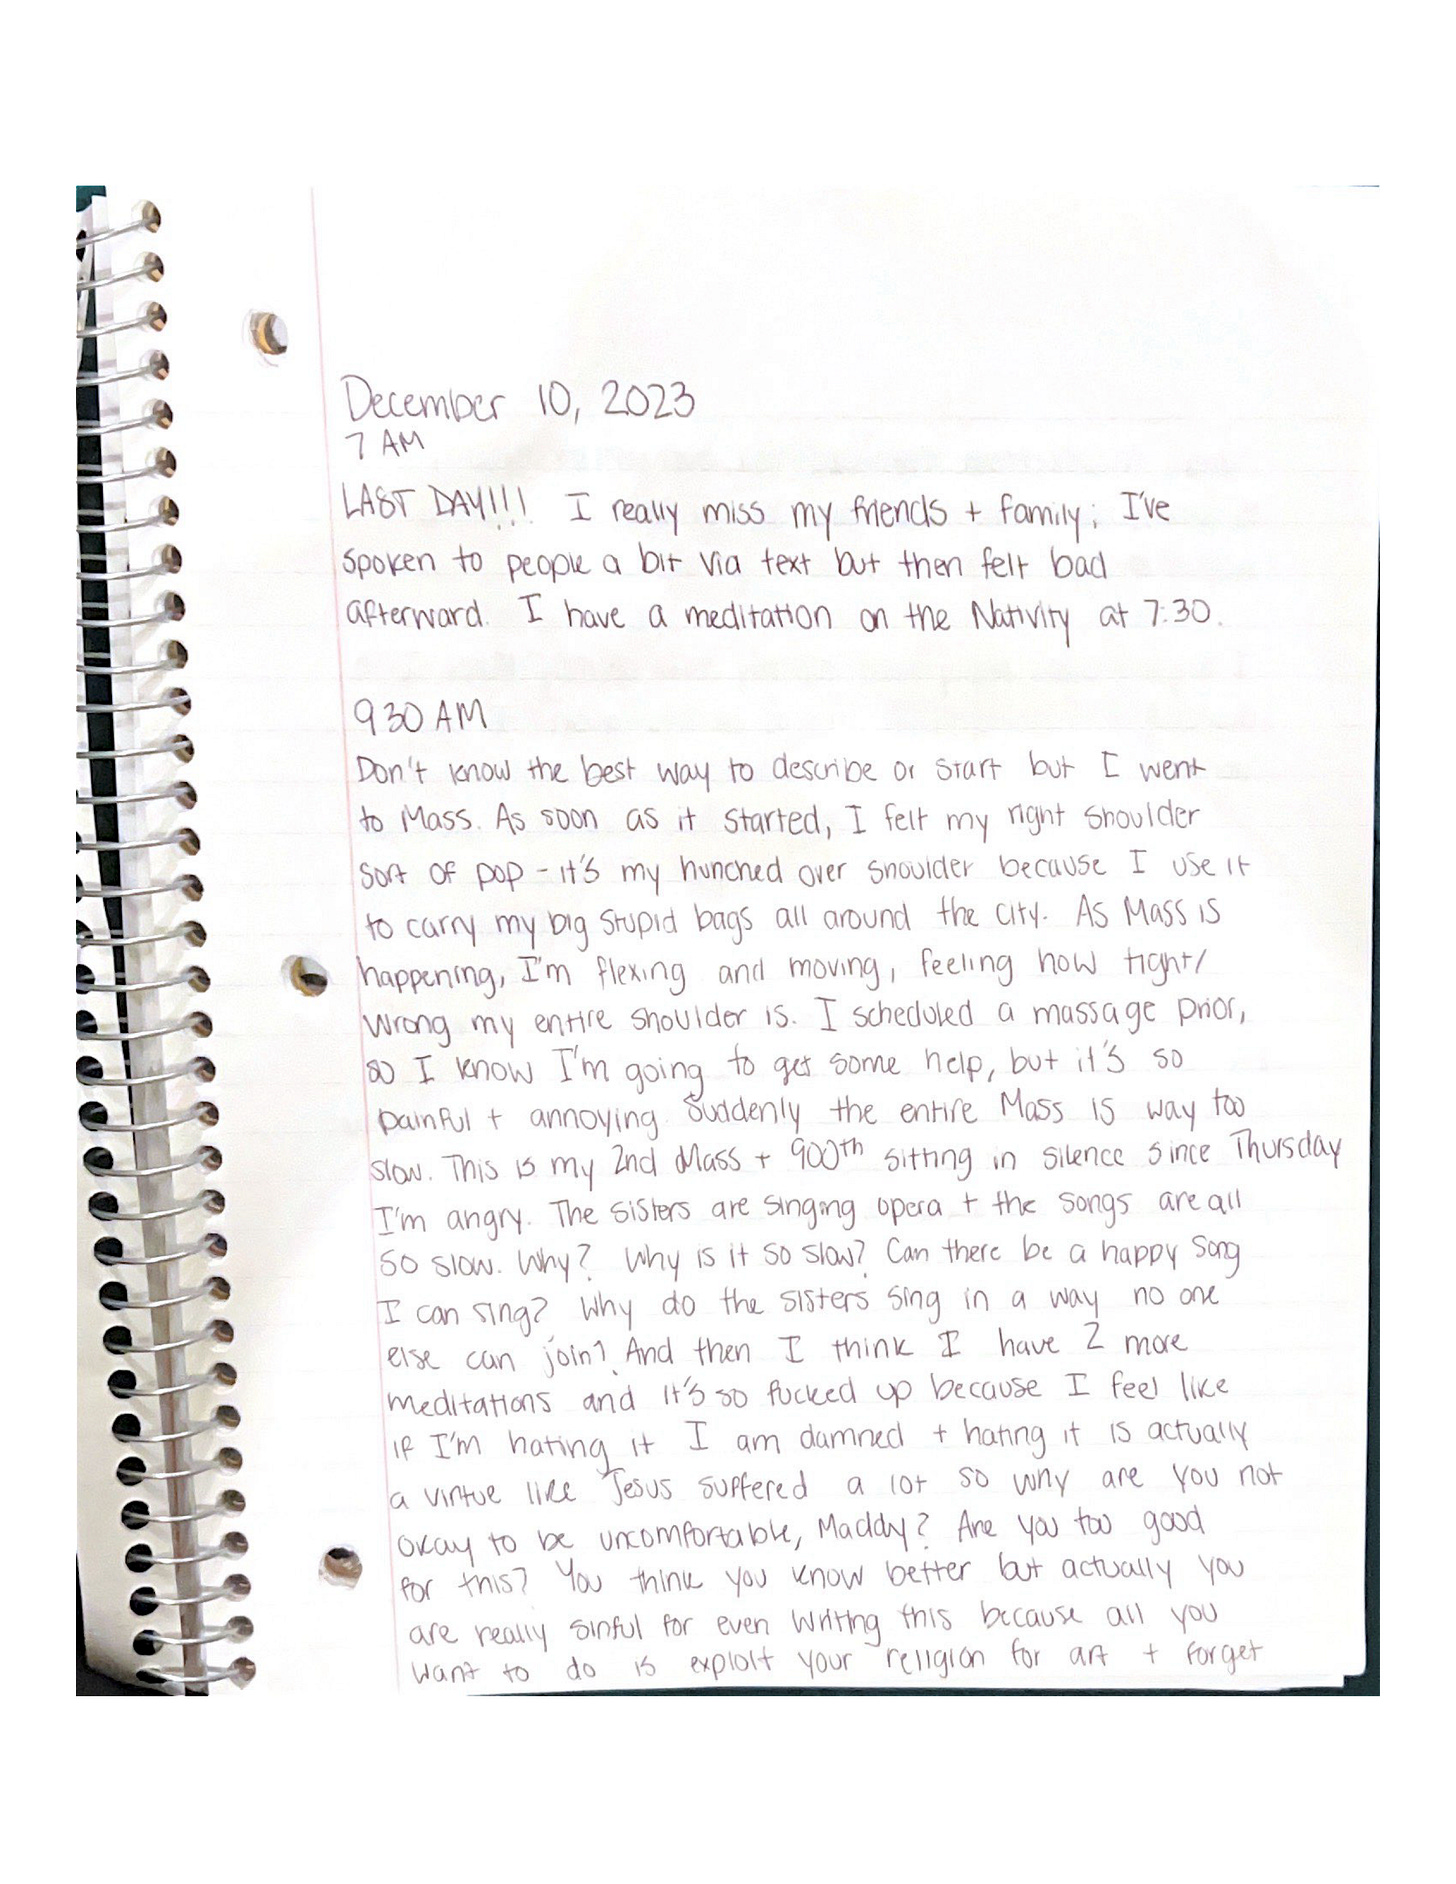 December 10, 2023
7 AM
LAST DAY!!! I really miss my friends + family; I've
spoken to people a bit via text but then felt bad
afterward. I have a meditation on the Nativity at 7:30.
930 AM
Don't know the best way to describe or start but I went
to Mass. As soon as it started, I felt my right shoulder
sort of pop - it's my hunched over shoulder because I use it
to carry my big stupid bags all around the city. As Mass is
happening, I'm flexing and moving, feeling how tight/
wrong my entire shoulder is. I scheduled a massage prior,
so I know I'm going to get some help, but it's so
painful + annoying. Suddenly the entire Mass is way too
slow. This is my 2nd Mass + 900th sitting in silence since Thursday
I'm angry. The sisters are singing opera + the songs are all
so slow. Why? Why is it so slow? Can there be a happy song
I can sing? Why do the sisters sing in a way no one
else can join? And then I think I have 2 more
meditations and it's so fucked up because I feel like
if I'm hating it I am damned + hating it is actually
a virtue like Jesus suffered a lot so why are you not
okay to be uncomfortable, Maddy? Are you too good
for this? You think you know better but actually you
are really sinful for even writing this because all you
want to do is exploit your religion for art + forget